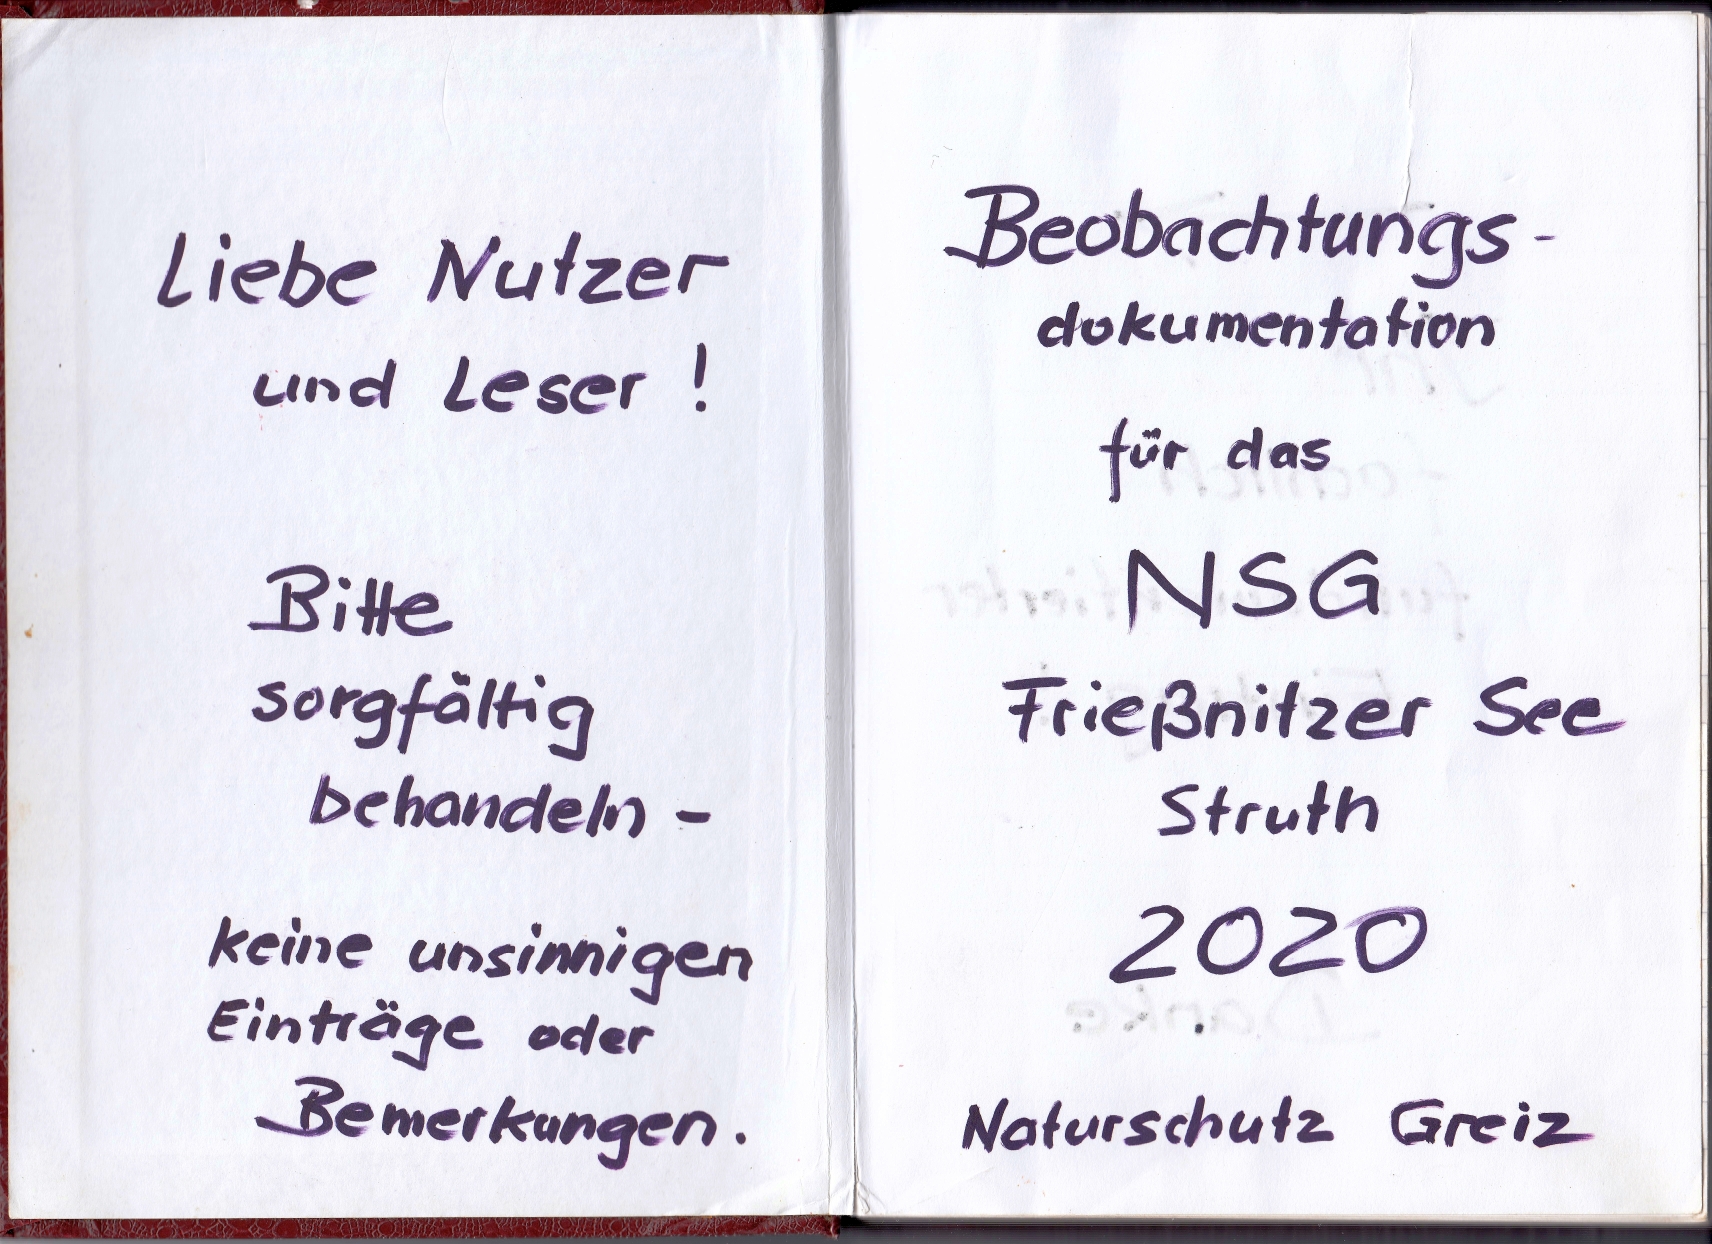 Liebe Nutzer
und Leser !
Bitte
sorgfältig
behandeln -
keine unsinnigen
Einträge oder
Bemerkungen.
Beobachtungs-
dokumentation
für das
NSG
Frießnitzer See
Struth
2020
Naturschutz Greiz